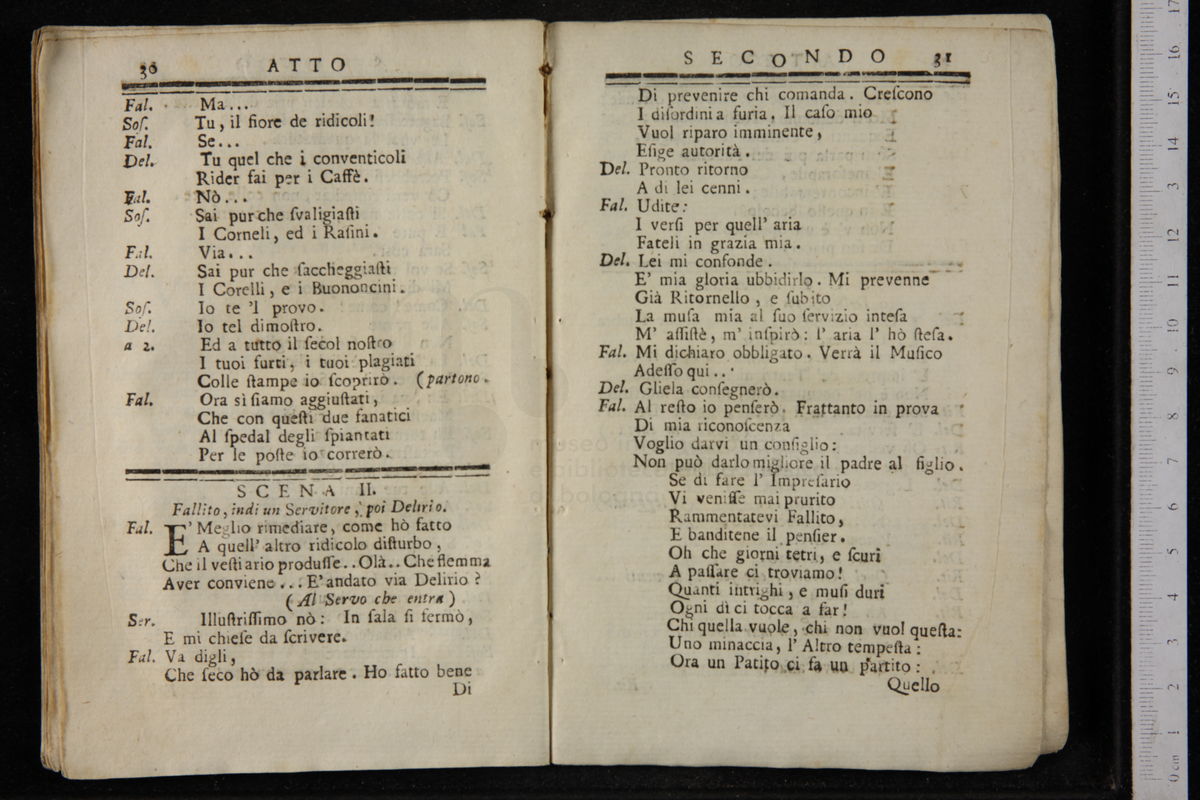 30 ATTO
Fal. Ma...
Soſ. Tu, il fiore de ridicoli!
Fal. Se...
Del. Tu quel che i conventicoli
Rider fai per i Caffè.
Fal. Nò...
Soſ. Sai pur che ſvaligiaſti
I Corneli, ed i Raſini.
Fal. Via...
Del. Sai pur che ſaccheggiaſti
I Corelli, e i Buononcini.
Soſ. Io te 'l provo.
Del. Io tel dimoſtro.
a 2. Ed a tutto il ſecol noſtro
I tuoi furti, i tuoi plagiati
Colle ſtampe io ſcoprirò. (partono.
Fal. Ora sì ſiamo aggiuſtati,
Che con queſti due fanatici
Al ſpedal degli ſpiantati
Per le poſte io correrò.
SCENA II.
Fallito, indi un Servitore, poi Delirio.
Fal. E' Meglio rimediare, come hò fatto
A quell' altro ridicolo diſturbo,
Che il veſtiario produſſe.. Olà.. Che flemma
Aver conviene... E' andato via Delirio?
(Al Servo che entra)
Ser. Illuſtriſſimo nò: In ſala ſi fermò,
E mi chieſe da ſcrivere.
Fal. Va digli,
Che ſeco hò da parlare. Ho fatto bene
Di
SECONDO 31
Di prevenire chi comanda. Creſcono
I diſordini a furia. Il caſo mio
Vuol riparo imminente,
Eſige autorità.
Del. Pronto ritorno
A di lei cenni.
Fal. Udite:
I verſi per quell' aria
Fateli in grazia mia.
Del. Lei mi confonde.
E' mia gloria ubbidirlo. Mi prevenne
Già Ritornello, e ſubito
La muſa mia al ſuo ſervizio inteſa
M' aſſiſtè, m' inſpirò: l' aria l' hò ſteſa.
Fal. Mi dichiaro obbligato. Verrà il Muſico
Adeſſo qui...
Del. Gliela conſegnerò.
Fal. Al reſto io penſerò. Frattanto in prova
Di mia riconoſcenza
Voglio darvi un conſiglio:
Non può darlo migliore il padre al figlio.
Se di fare l' Impreſario
Vi veniſſe mai prurito
Rammentatevi Fallito,
E banditene il penſier.
Oh che giorni tetri, e ſcuri
A paſſare ci troviamo!
Quanti intrighi, e muſi duri
Ogni dì ci tocca a far!
Chi quella vuole, chi non vuol queſta:
Uno minaccia, l' Altro tempeſta:
Ora un Patito ci fa un partito:
Quello